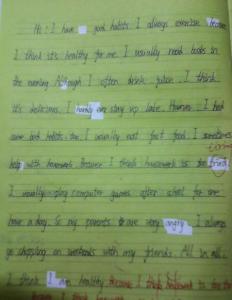 Hi! I have good habits. I always exercise because
I think it's healthy for me. I usually read books in
the morning. Although I often drink juice. I think
it's delicious. I hardly ever stay up late. However, I had
some bad habits too. I usually eat fast food. I sometimes
help with housework because I think housework is so boring
I usually play computer games after school for one
hour a day. So my parents are very angry. I always
go shopping on weekends with my friends. All in all, I
think I am healthy because I help housework to